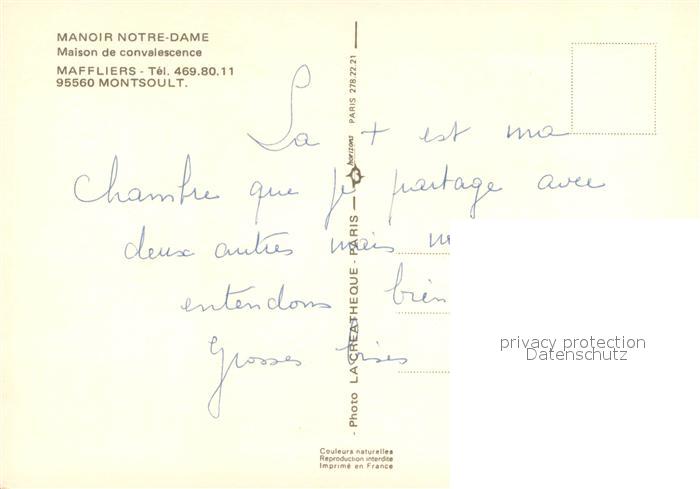 MANOIR NOTRE-DAME
Maison de convalescence
MAFFLIERS - Tél. 469.80.11
95560 MONTSOULT.
La + est ma
chambre que je partage avec
deux autres mais
entendons bien
Grosses bises
- Photo LA CREATHEQUE - PARIS - horizons PARIS 278.22.21
Couleurs naturelles
Reproduction interdite
Imprimé en France
privacy protection
Datenschutz